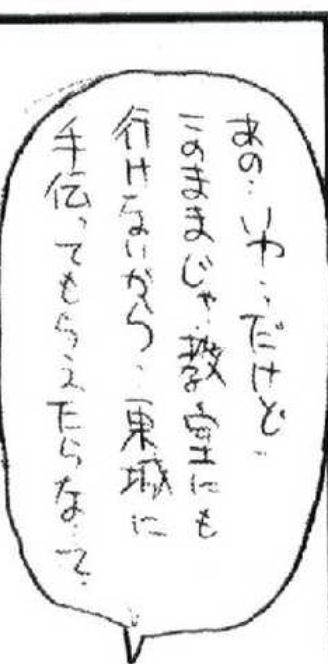 あの…いや…だけど…
このままじゃ…教室にも
行けないから…東城に
手伝ってもらえたらな…って